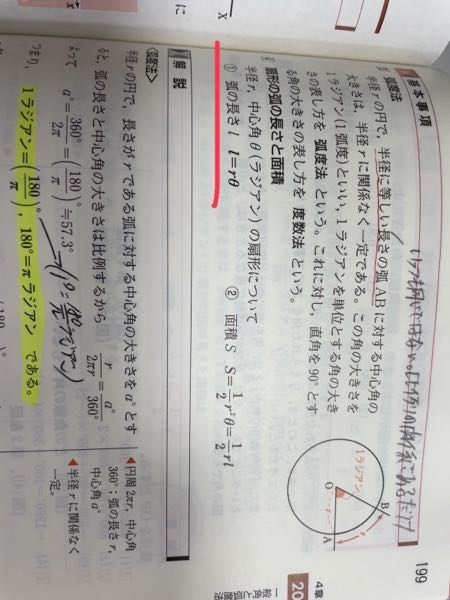 199
4章
20
一般角と弧度法
基本事項
弧度法
半径rの円で,半径に等しい長さの弧ABに対する中心角の
大きさは,半径rに関係なく一定である。この角の大きさを
1ラジアン(1弧度)といい,1ラジアンを単位とする角の大き
さの表し方を 弧度法 という。これに対し,直角を90°とす
る角の大きさの表し方を 度数法 という。
1ラジアン
O
r
A
B
扇形の弧の長さと面積
半径r,中心角θ(ラジアン)の扇形について
① 弧の長さl l=rθ
② 面積S S=1/2r²θ=1/2rl
解説
<弧度法>
半径rの円で,長さがrである弧に対する中心角の大きさをa°とす
ると,弧の長さと中心角の大きさは比例するから r/2πr=a°/360°
よって a°=360°/2π=(180/π)°≒57.3°
つまり, 1ラジアン=(180/π)°, 180°=πラジアン である。
◀円周2πr,中心角
360°;弧の長さr,
中心角a°
◀半径rに関係なく
一定。
に
X